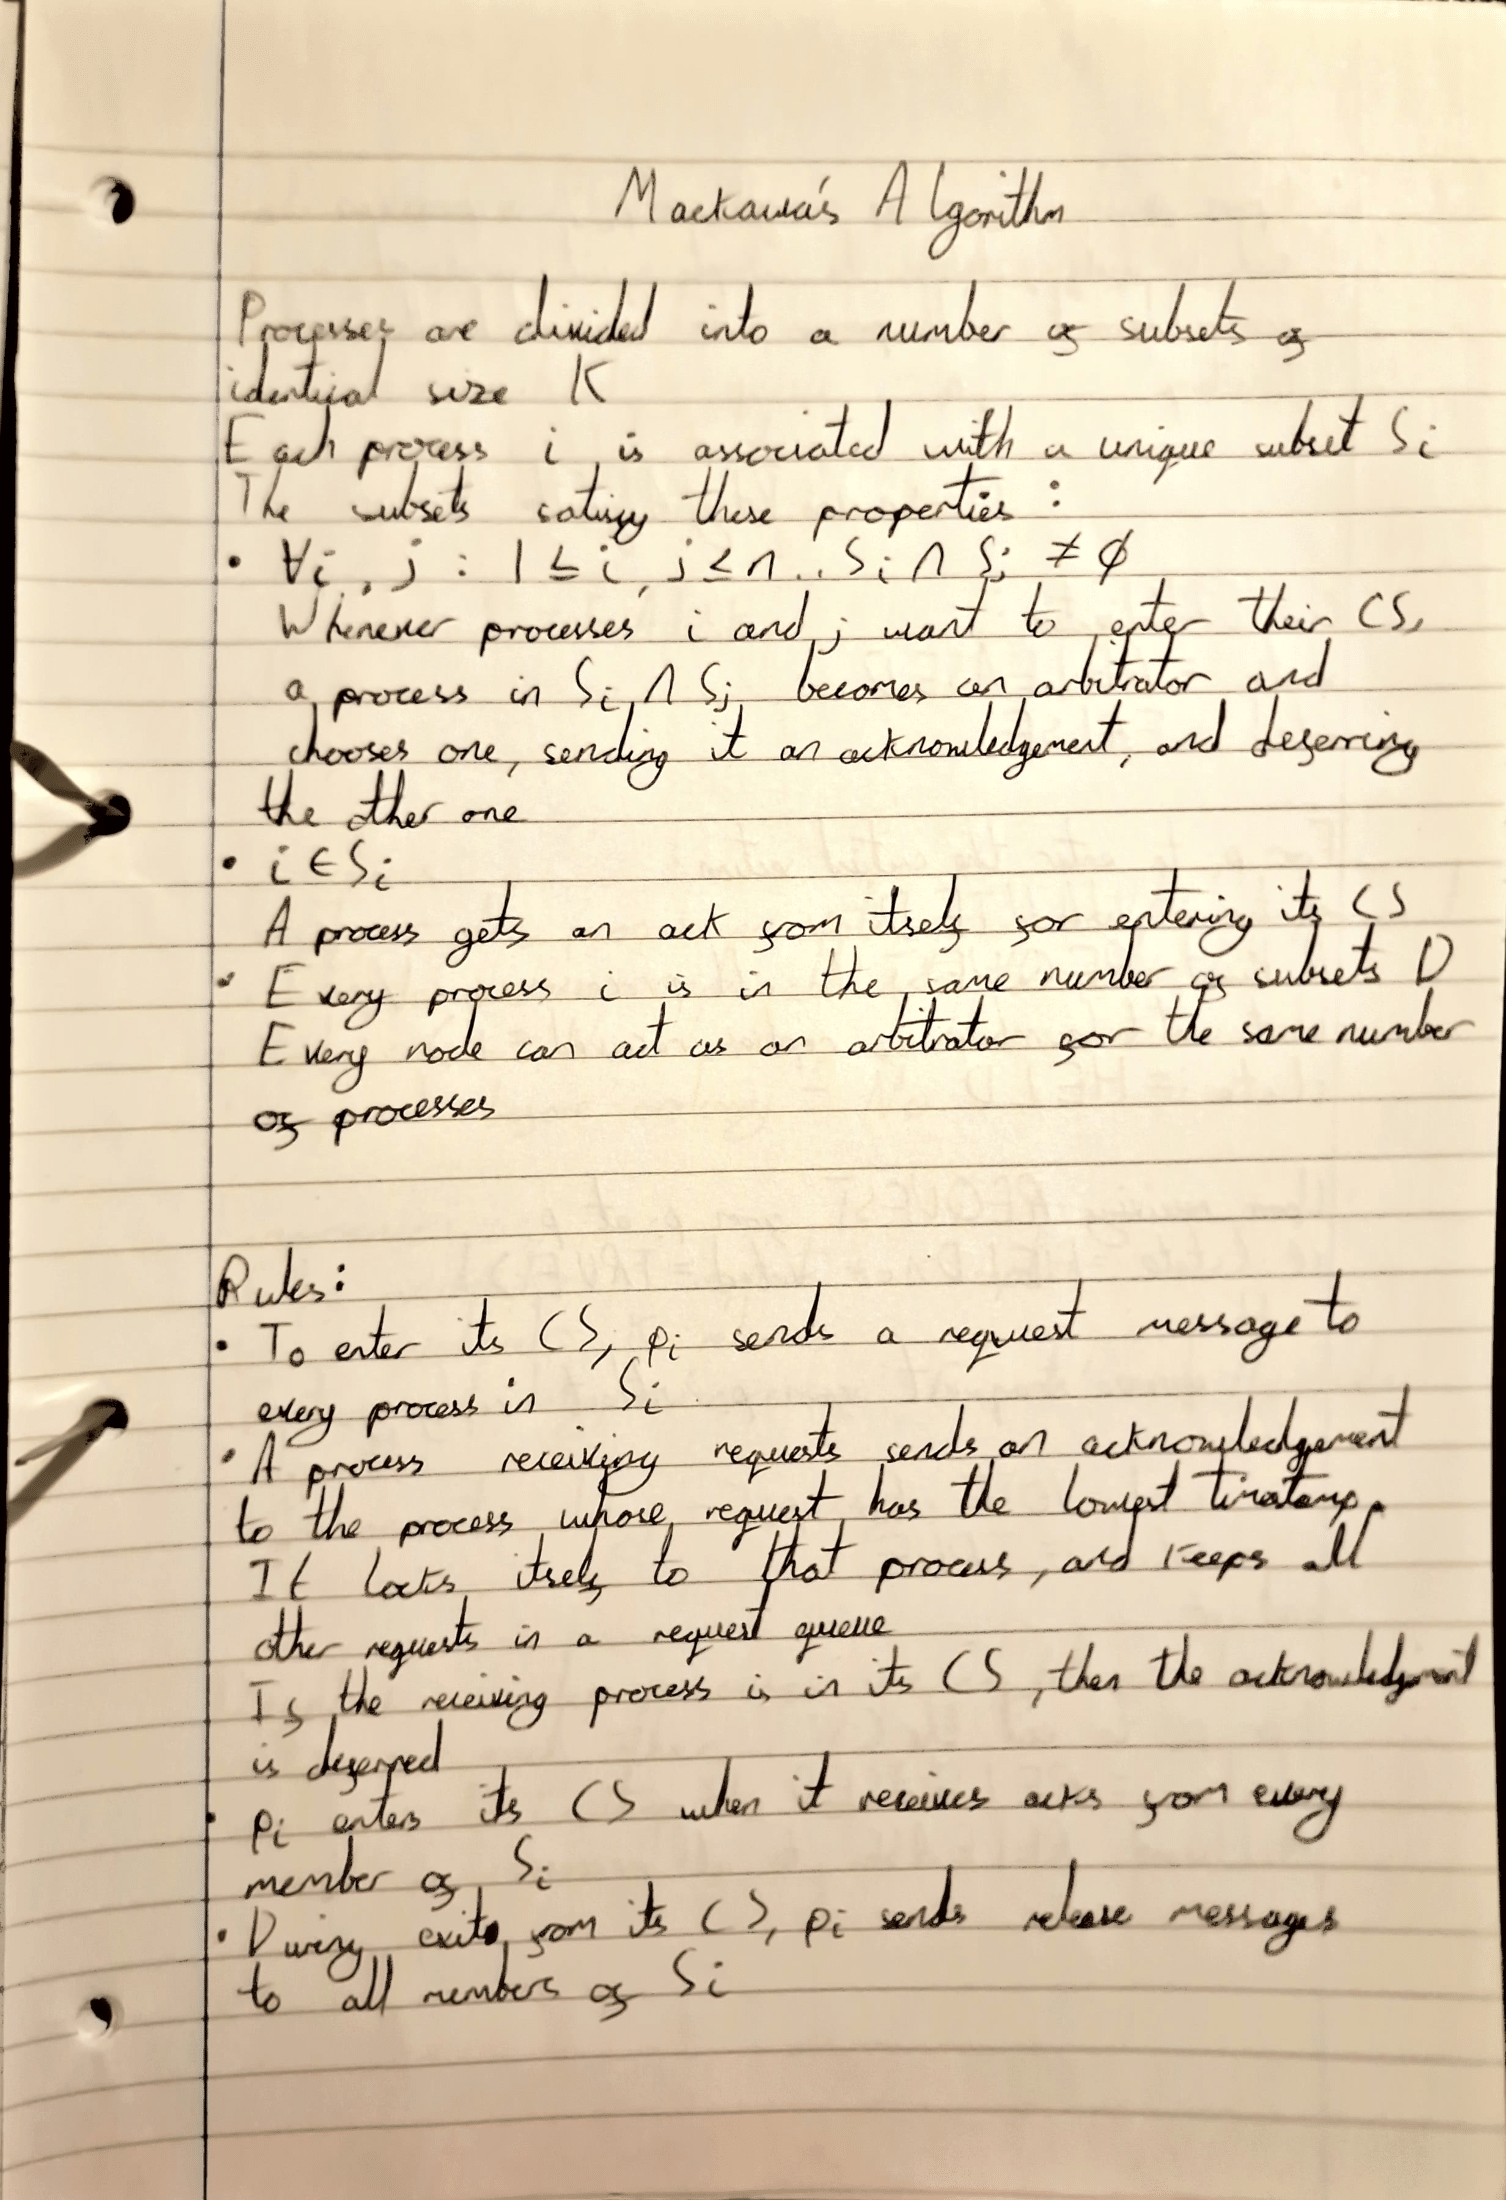 Maekawa's Algorithm
Processes are divided into a number of subsets of
identical size K
Each process i is associated with a unique subset Si
The subsets satisfy these properties:
• ∀i, j : 1 ≤ i, j ≤ n .. Si ∩ Sj ≠ ∅
Whenever processes i and j want to enter their CS,
a process in Si ∩ Sj becomes an arbitrator and
chooses one, sending it an acknowledgement, and deferring
the other one
• i ∈ Si
A process gets an ack from itself for entering its CS
• Every process i is in the same number of subsets D
Every node can act as an arbitrator for the same number
of processes
Rules:
• To enter its CS, pi sends a request message to
every process in Si
• A process receiving requests sends an acknowledgement
to the process whose request has the lowest timestamp.
It locks itself to that process, and keeps all
other requests in a request queue
If the receiving process is in its CS, then the acknowledgment
is deferred
• pi enters its CS when it receives acks from every
member of Si
• During exit from its CS, pi sends release messages
to all members of Si